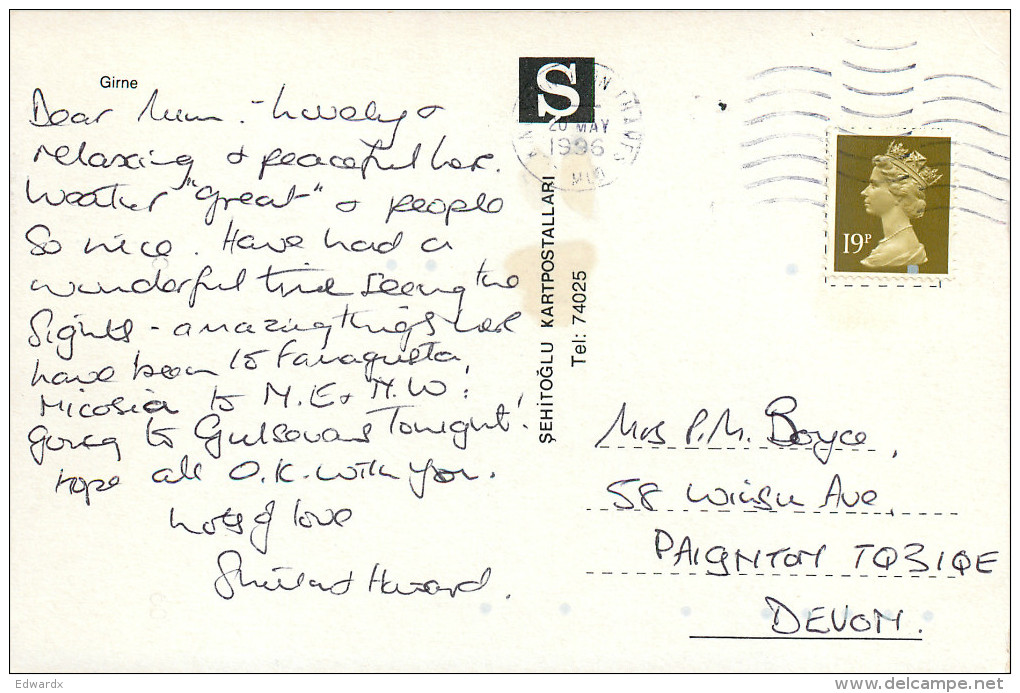 Girne
Dear Mum :- Lovely &
relaxing & peaceful here.
Weather "great" & people
so nice. Have had a
wonderful time seeing the
sights - amazing things here
have been to Famagusta,
Nicosia to N.E & N.W:
going to Gulsovans Tonight!
Hope all O.K. with you.
Lots of love
Sheila & Howard.
Ş
20 MAY
1996
ŞEHİTOĞLU KARTPOSTALLARI
Tel: 74025
19P
Mrs P.M. Boyce,
58 Winsu Ave,
PAIGNTON TQ3 1QE
DEVON.
Edwardx
delcampe.net